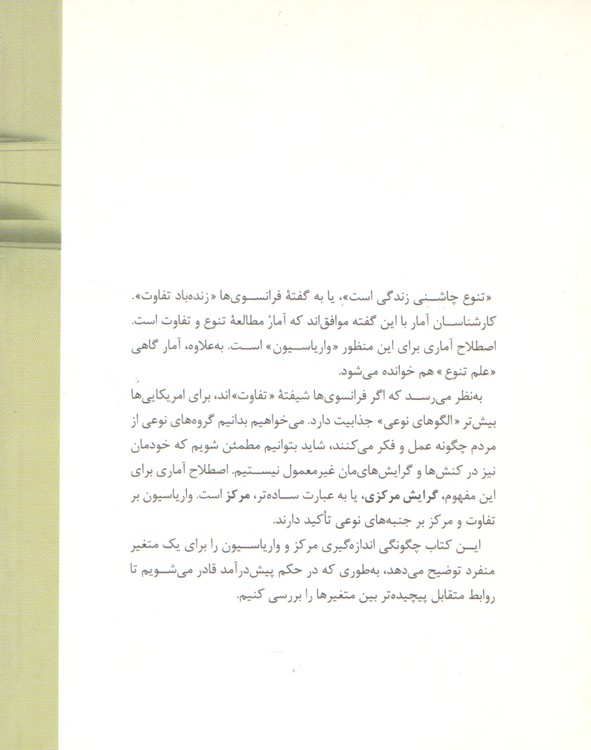 «تنوع چاشنی زندگی است»، یا به گفتهٔ فرانسوی‌ها «زنده‌باد تفاوت».
کارشناسان آمار با این گفته موافق‌اند که آمارْ مطالعهٔ تنوع و تفاوت است.
اصطلاح آماری برای این منظور «واریاسیون» است. به‌علاوه، آمار گاهی
«علم تنوع» هم خوانده می‌شود.
به‌نظر می‌رسد که اگر فرانسوی‌ها شیفتهٔ «تفاوت»اند، برای امریکایی‌ها
بیش‌تر «الگوهای نوعی» جذابیت دارد. می‌خواهیم بدانیم گروه‌های نوعی از
مردم چگونه عمل و فکر می‌کنند، شاید بتوانیم مطمئن شویم که خودمان
نیز در کنش‌ها و گرایش‌های‌مان غیرمعمول نیستیم. اصطلاح آماری برای
این مفهوم، گرایش مرکزی، یا به عبارت ساده‌تر، مرکز است. واریاسیون بر
تفاوت و مرکز بر جنبه‌های نوعی تأکید دارند.
این کتاب چگونگی اندازه‌گیری مرکز و واریاسیون را برای یک متغیر
منفرد توضیح می‌دهد، به‌طوری که در حکم پیش‌درآمد قادر می‌شویم تا
روابط متقابل پیچیده‌تر بین متغیرها را بررسی کنیم.